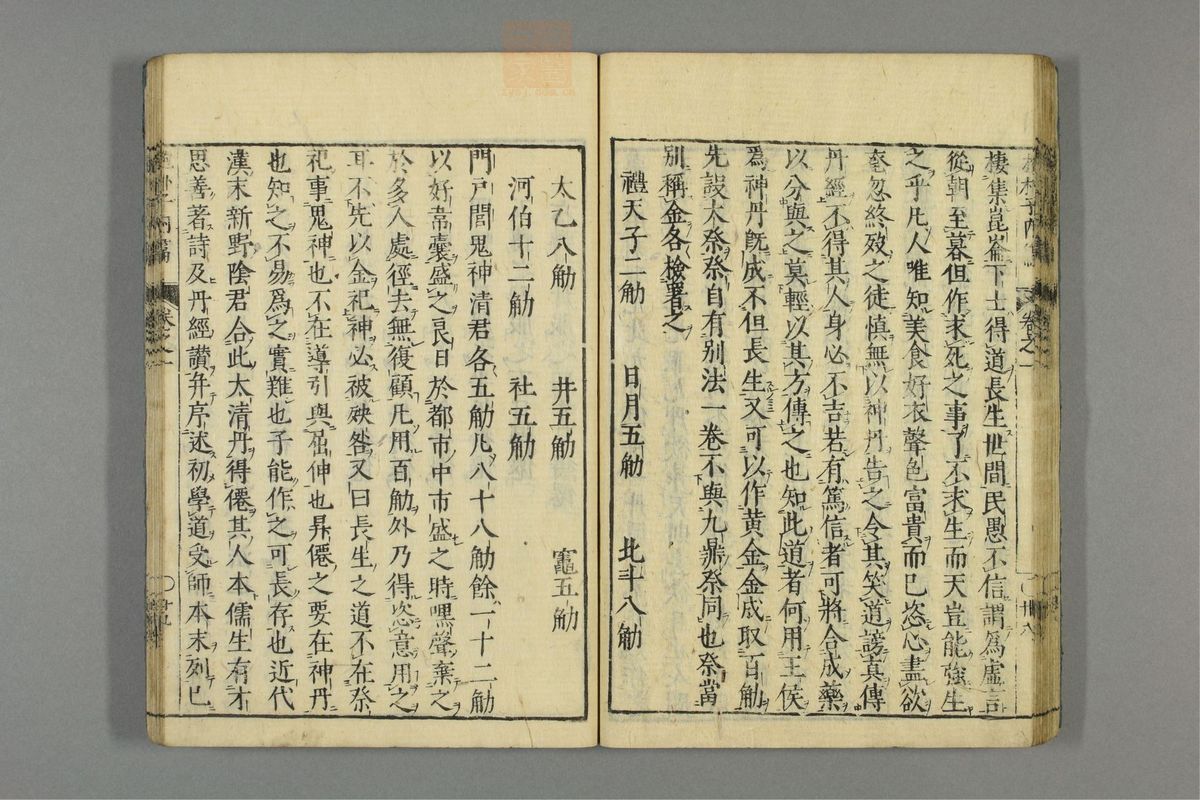 棲集崑崙下士得道長生世間民愚不信謂爲虛言
從朝至暮但作求死之事了不求生而天豈能強生
之乎凡人唯知美食好衣聲色富貴而已恣心盡欲
奄忽終歿之徒慎無以神丹告之令其笑道謗真傳
丹經不得其人身必不吉若有篤信者可將合成藥
以分與之莫輕以其方傳之也知此道者何用王侯
爲神丹既成不但長生又可以作黄金金成取百觔
先設大祭祭自有别法一卷不與九鼎祭同也祭當
别稱金各檢署之
禮天子二觔 日月五觔 北斗八觔
太乙八觔 井五觔 竈五觔
河伯十二觔 社五觔
門戸閭鬼神清君各五觔凡八十八觔餘一十二觔
以好韋囊盛之良日於都市中市盛之時嘿聲棄之
於多人處徑去無復顧凡用百觔外乃得恣意用之
耳不先以金祀神必被殃咎又曰長生之道不在祭
祀事鬼神也不在導引與屈伸也昇僊之要在神丹
也知之不易爲之實難也子能作之可長存也近代
漢末新野陰君合此太清丹得僊其人本儒生有才
思善著詩及丹經讃并序述初學道受師本末列已
卷之一